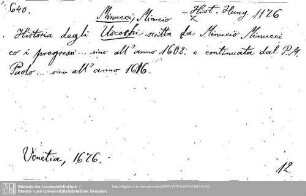 640.
Minucci, Minuccio – Hist. Hung. 1176
Historia degli Uscochi scritta da Minucio Minucci
co i progressi... sino all'anno 1602. e continuata dal P. M.
Paolo... sino all'anno 1616.
Venetia, 1676.
12